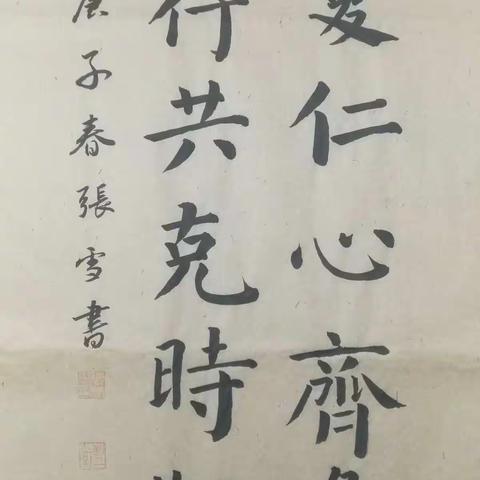 仁心齊
共克時
子春張雪書